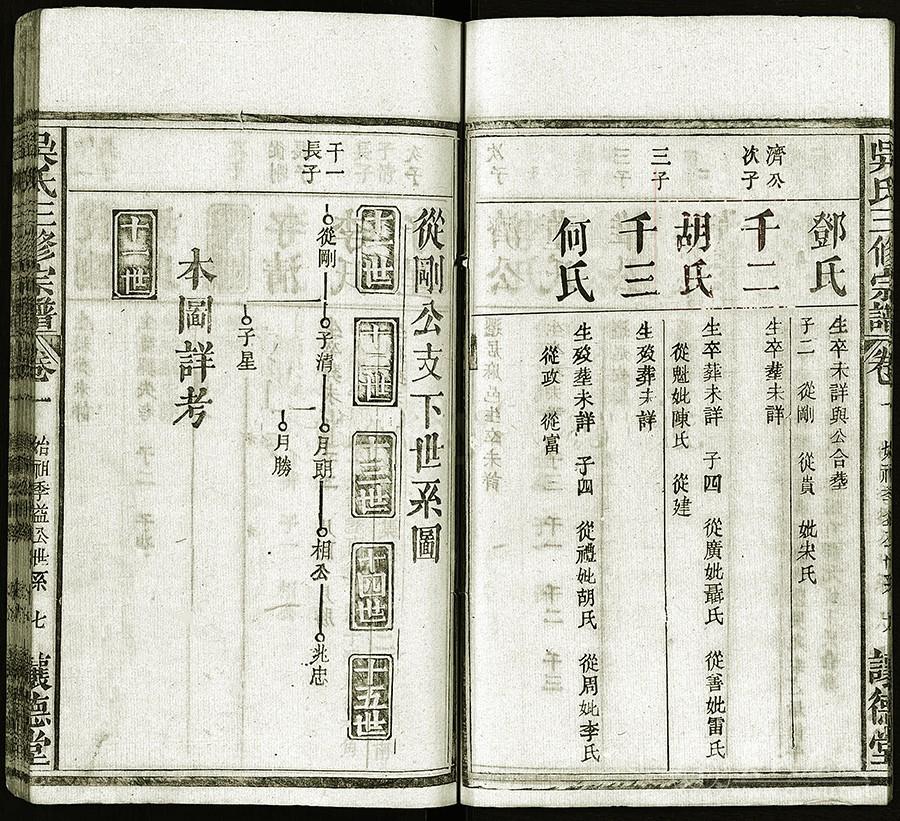 吳氏三修宗譜
卷一
讓德堂
鄧氏
生卒未詳與公合塟
子二 從剛 從貴 妣朱氏
濟公
次子
千二
生卒塟未詳
胡氏
生卒葬未詳 子四 從廣妣聶氏 從善妣雷氏
從魁妣陳氏 從建
三子
千三
生殁葬未詳
何氏
生殁塟未詳 子四 從禮妣胡氏 從周妣李氏
從政 從富
從剛公支下世系圖
十一世
十二世
十三世
十四世
十五世
千一
長子
從剛
子清
月朗
相公
兆忠
月勝
子星
本圖詳考
十一世
吳氏三修宗譜
卷一
始祖季益公世系
七
讓德堂